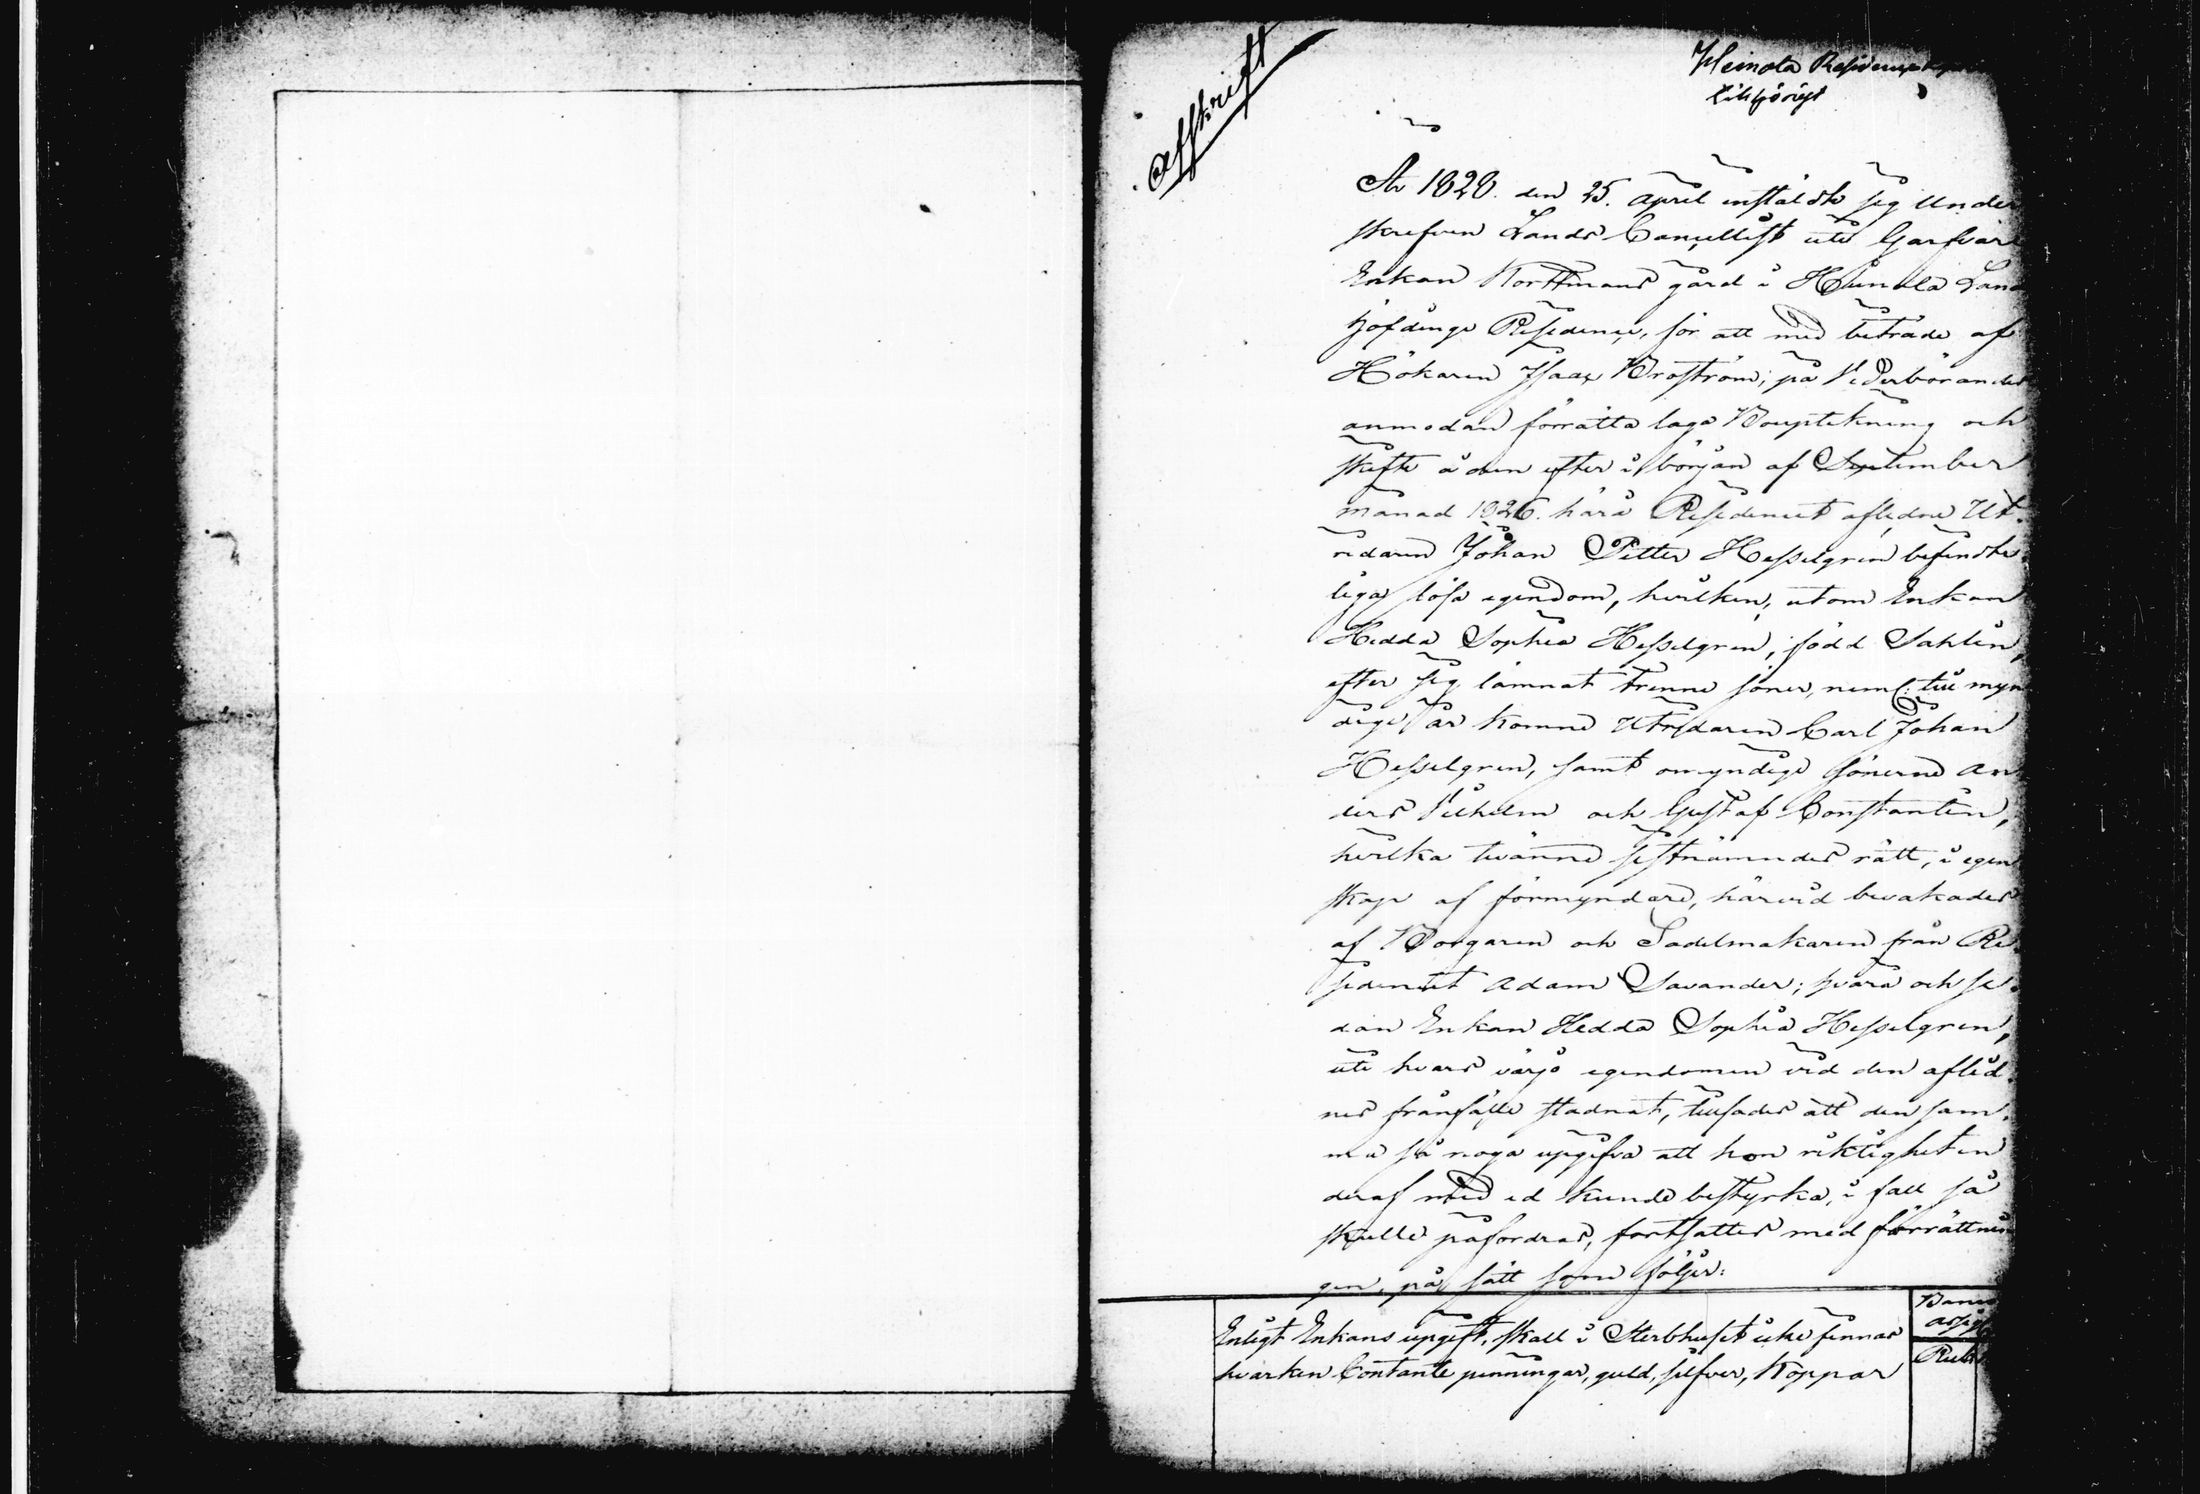 Afskrift
Heinola Residence
tillhörigt
År 1828. den 25. April instälde sig Under
skrefven Lands Cancellist uti Garfvar
Enkan Korttmans gård i Heinola Lands
höfdinge Residence, för att med biträde af
Hökaren Isaac Broström, på Vederbörandes
anmodan förrätta laga Boupteckning och
skifte å den efter i början af September
månad 1826. härå Residencet aflidne Ut-
ridaren Johan Petter Hesselgren befindte-
liga lösa egendom, hvilken, utom Enkan
Hedda Sophia Hesselgren, född Sahlin,
efter sig lämnat trenne söner, neml: till myn
dige år komne Utridaren Carl Johan
Hesselgren, samt omyndige sönerne An
ders Vilhelm och Gustaf Constantin,
hvilka tvänne sistnämndes rätt, i egen
skap af förmyndare, härvid bevakades
af Borgaren och Sadelmakaren från Re-
sidencet Adam Savander; hvarå och se-
dan Enkan Hedda Sophia Hesselgren,
uti hvars värjo egendomen vid den aflid-
nes frånfälle stadnat, tillsades att den sam-
ma så noga uppgifva att hon riktigheten
deraf med ed kunde bestyrka, i fall så
skulle påfordras, fortsattes med förrättnin
gen, på sätt som följer:
Enligt Enkans uppgift, skall i Sterbhuset icke finnas
hvarken Contante penningar, guld, silfver, Koppar
Banco
assig
Rub